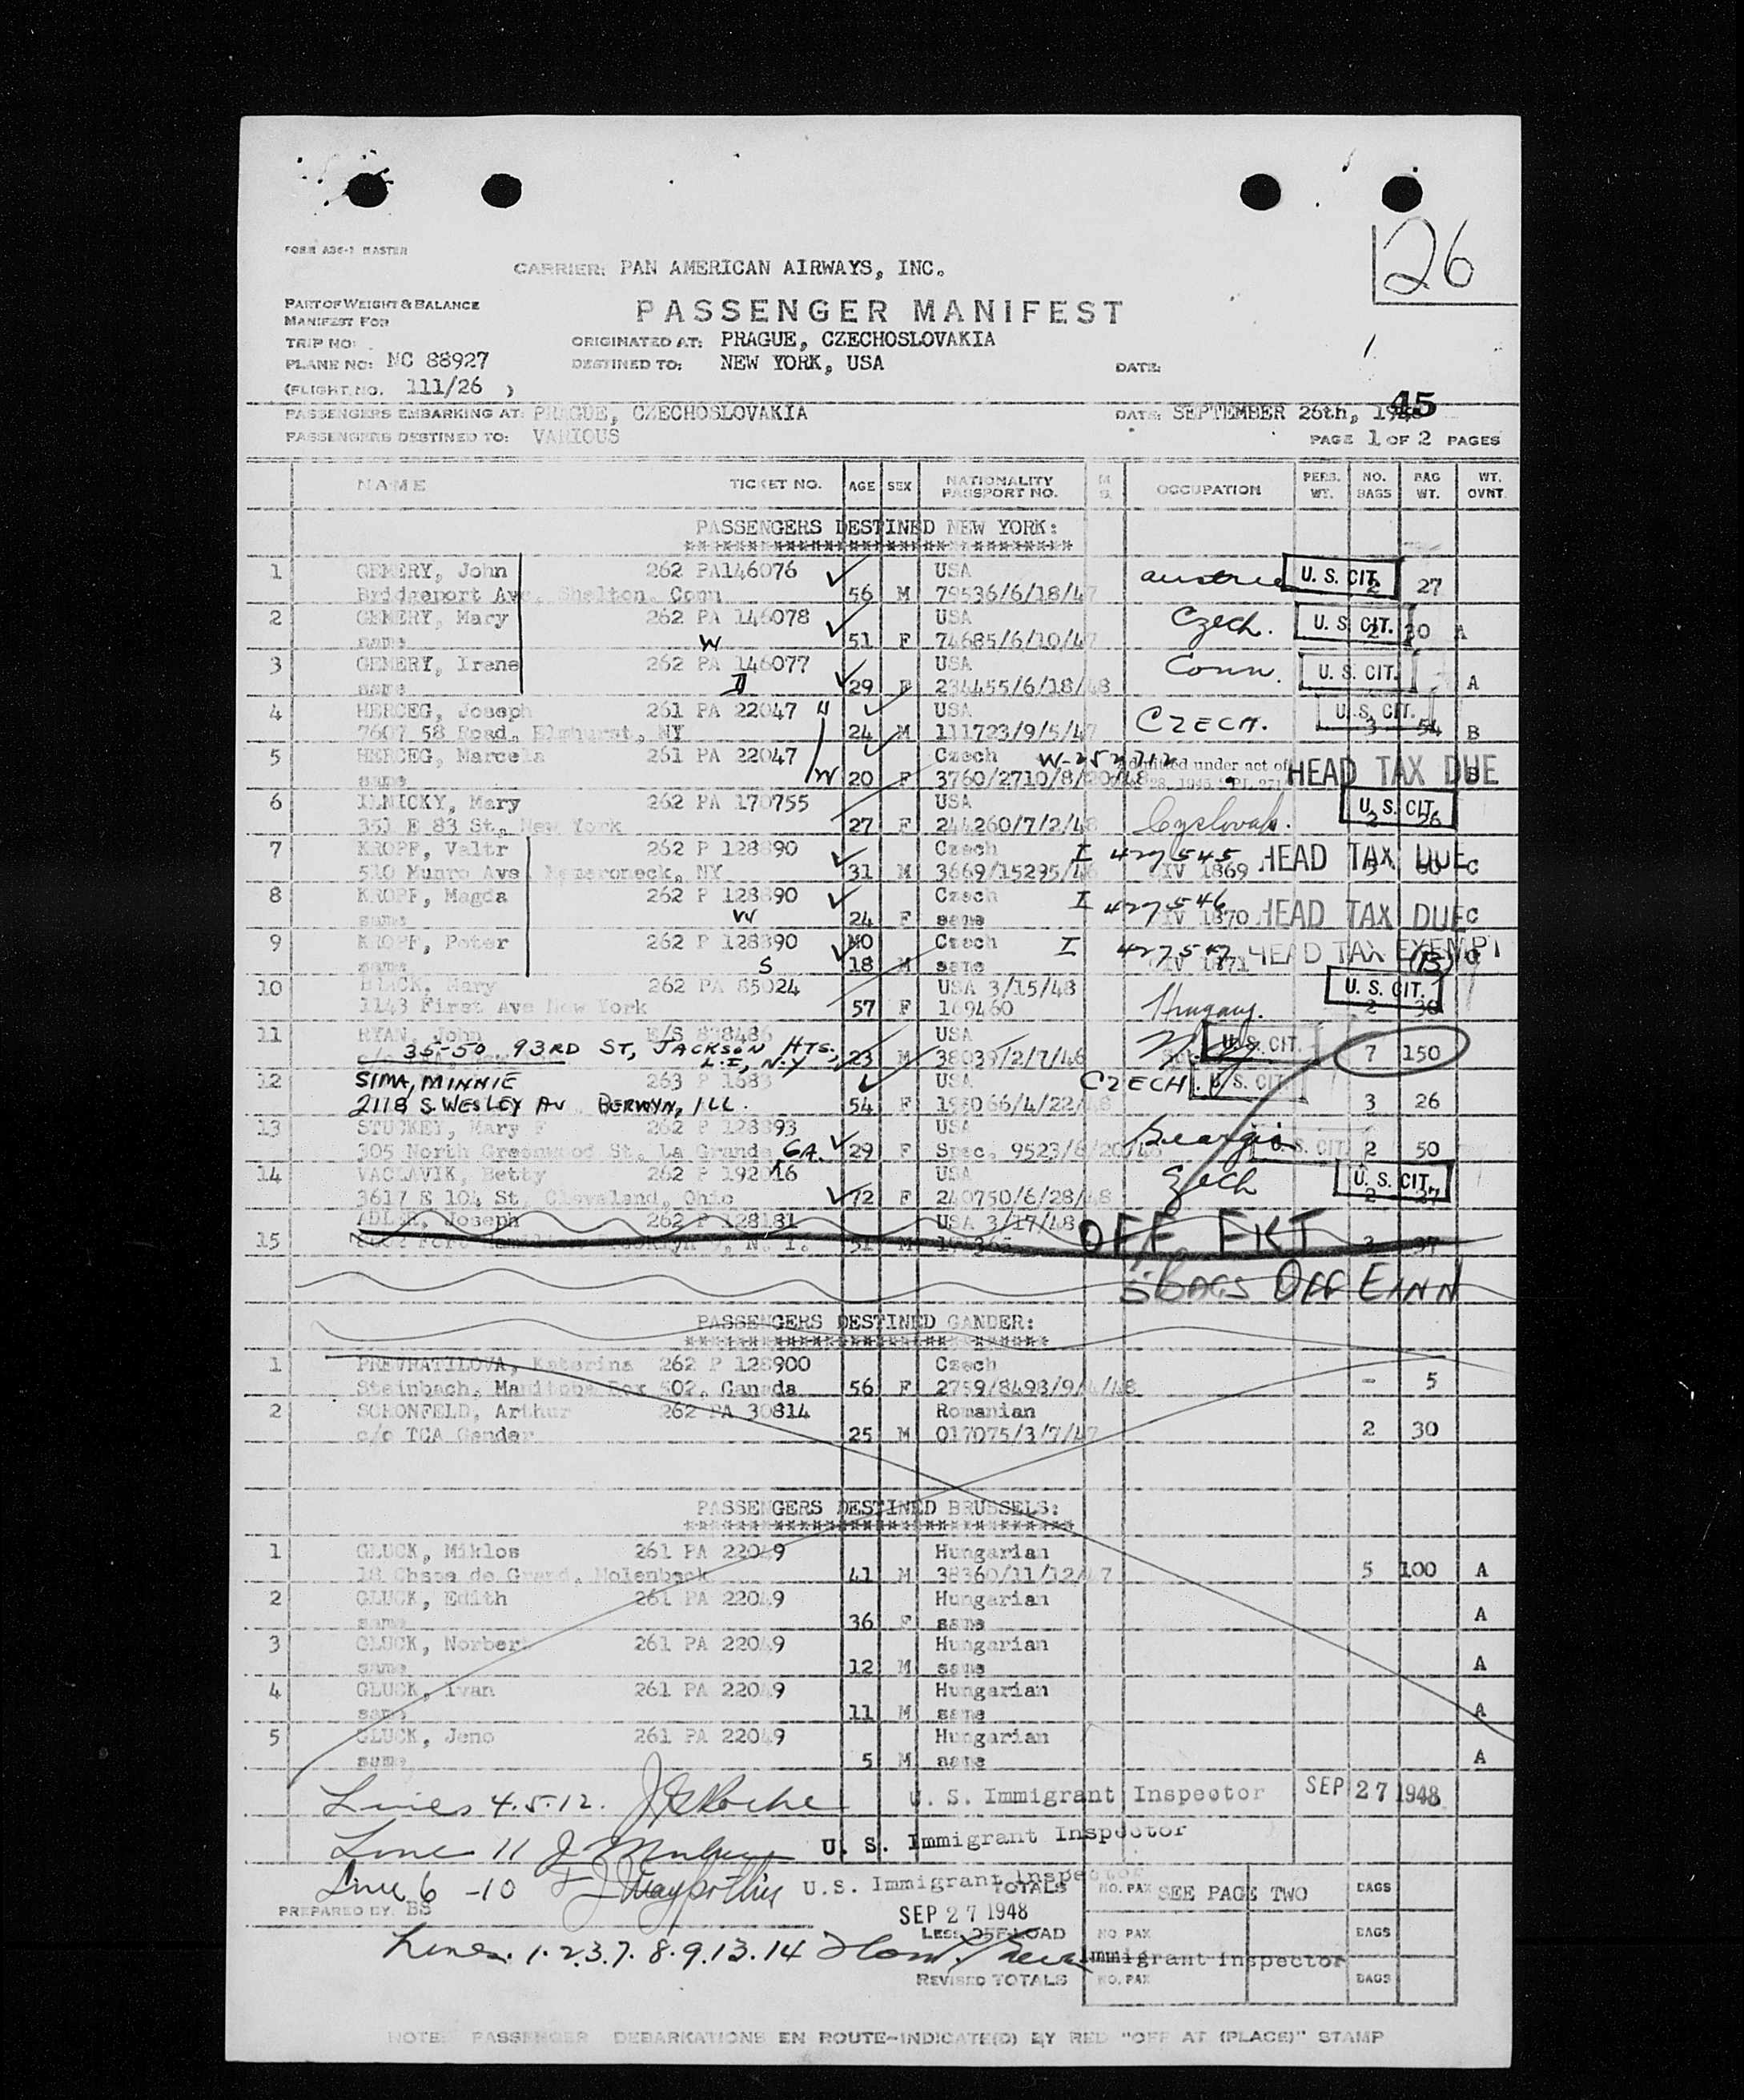 26
FORM A36-1 MASTER
CARRIER: PAN AMERICAN AIRWAYS, INC.
PART OF WEIGHT & BALANCE
MANIFEST FOR
PASSENGER MANIFEST
TRIP NO:
ORIGINATED AT: PRAGUE, CZECHOSLOVAKIA
PLANE NO: NC 88927
DESTINED TO: NEW YORK, USA
DATE:
(FLIGHT NO. 111/26 )
PASSENGERS EMBARKING AT: PRAGUE, CZECHOSLOVAKIA
DATE: SEPTEMBER 26th, 45
PASSENGERS DESTINED TO: VARIOUS
PAGE 1 OF 2 PAGES
NAME TICKET NO. AGE SEX NATIONALITY PASSPORT NO. M S. OCCUPATION PERS. WT. NO. BAGS BAG WT. WT. OVNT.
PASSENGERS DESTINED NEW YORK:
1 GEMERY, John 262 PA146076 USA
Bridgeport Ave, Shelton, Conn 56 M 79536/6/18/47 Austria U. S. CIT. 2 27
2 GEMERY, Mary 262 PA 146078 USA
same W 51 F 74685/6/10/47 Czech. U. S. CIT. 2 30 A
3 GEMERY, Irene 262 PA 146077 USA
same D 29 F 234455/6/18/48 Conn. U. S. CIT. A
4 HERCEG, Joseph 261 PA 22047 USA
7607 58 Road, Elmhurst, NY 24 M 111723/9/5/47 CZECH. U. S. CIT. 3 54 B
5 HERCEG, Marcela 261 PA 22047 Czech
same W 20 F 3760/2710/8/20/48 Admitted under act of HEAD TAX DUE B
6 ILNICKY, Mary 262 PA 170755 USA
351 E 83 St, New York 27 F 244260/7/2/48 U. S. CIT. 2 26
7 KROPF, Valtr 262 P 128890 Czech I 427545
510 Munro Ave, Mamaroneck, NY 31 M 3669/15295/46 IV 1869 HEAD TAX DUE C
8 KROPF, Magda 262 P 128890 Czech I 427546
same W 24 F same IV 1870 HEAD TAX DUE C
9 KROPF, Peter 262 P 128890 MO Czech I 427547
same S 18 M same IV 1871 HEAD TAX EXEMPT (15)
10 BLACK, Mary 262 PA 85024 USA 3/15/48
1143 First Ave New York 57 F 169460 Hungary. U. S. CIT. 2 30
11 RYAN, John USA
35-50 93RD ST, JACKSON HTS. L.I, N.Y 23 M 38039/2/7/46 N.Y. U. S. CIT. 7 150
12 SIMA, MINNIE USA CZECH. U. S. CIT.
2118 S. WESLEY AV BERWYN, ILL. 54 F 3 26
13 STUCKEY, Mary F 262 P 128893 USA
305 North Greenwood St, La Grande, GA. 29 F Spec. 9523/6/20/48 Georgia U. S. CIT. 2 50
14 VACLAVIK, Betty 262 P 192016 USA
3617 E 104 St, Cleveland, Ohio 72 F 240750/6/28/48 Czech U. S. CIT. 2 37
ADLER, Joseph 262 P 128181 USA 3/17/48
15 51 M OFF FKT 2 37
5 BAGS OFF EINN
PASSENGERS DESTINED GANDER:
1 PREVRATILOVA, Katerina 262 P 128900 Czech
Steinbach, Manitoba Box 502, Canada 56 F 2759/8498/9/4/48 - 5
2 SCHONFELD, Arthur 262 PA 30814 Romanian
c/o TCA Gander 25 M 017075/3/7/47 2 30
PASSENGERS DESTINED BRUSSELS:
1 GLUCK, Miklos 261 PA 22049 Hungarian
18 Chsse de Grand, Molenbeek 41 M 38360/11/12/47 5 100 A
2 GLUCK, Edith 261 PA 22049 Hungarian
same 36 F same A
3 GLUCK, Norbert 261 PA 22049 Hungarian
same 12 M same A
4 GLUCK, Ivan 261 PA 22049 Hungarian
same 11 M same A
5 GLUCK, Jeno 261 PA 22049 Hungarian
same 5 M same A
Lines 4.5.12. U. S. Immigrant Inspector SEP 27 1948
Line 11 U. S. Immigrant Inspector
Line 6 -10 U. S. Immigrant Inspector
TOTALS NO. PAX SEE PAGE TWO BAGS
PREPARED BY: BS SEP 27 1948
LESS OFF-LOAD NO PAX BAGS
Lines. 1.2.3.7.8.9.13.14 Immigrant Inspector
REVISED TOTALS NO. PAX BAGS
NOTE: PASSENGER DEBARKATIONS EN ROUTE-INDICATE(D) BY RED "OFF AT (PLACE)" STAMP